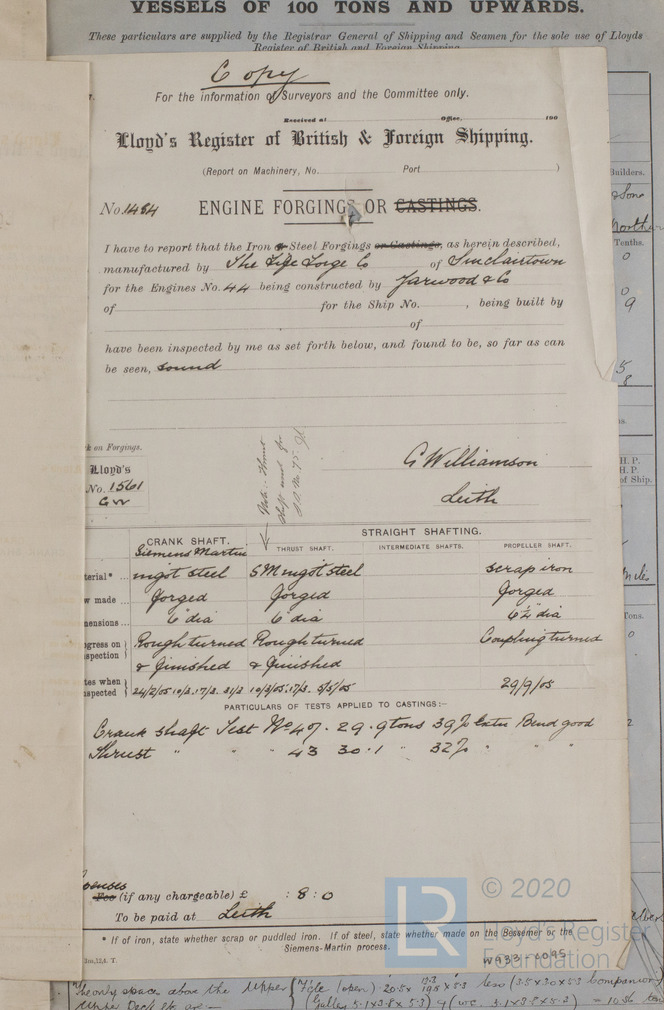 VESSELS OF 100 TONS AND UPWARDS.
These particulars are supplied by the Registrar General of Shipping and Seamen for the sole use of Lloyds
Register of British and Foreign Shipping
Copy
For the information of Surveyors and the Committee only.
Received at Office, 190
Lloyd's Register of British & Foreign Shipping.
(Report on Machinery, No. Port )
No. 1484 ENGINE FORGINGS OR CASTINGS.
I have to report that the Iron or Steel Forgings or Castings, as herein described,
manufactured by The Fife Forge Co of Sinclairtown
for the Engines No. 44 being constructed by Yarwood & Co
of for the Ship No. , being built by
of
have been inspected by me as set forth below, and found to be, so far as can
be seen, sound
k on Forgings.
Lloyd's
No. 1561
GW
Note. Thrust
shaft used for
G Williamson
Leith
CRANK SHAFT. STRAIGHT SHAFTING.
THRUST SHAFT. INTERMEDIATE SHAFTS. PROPELLER SHAFT.
Siemens Martin
terial* ... ingot steel S M ingot steel scrap iron
w made ... forged forged forged
mensions ... 6" dia 6" dia 6½" dia
ogress on Rough turned Rough turned Coupling turned
spection & finished & finished
tes when
spected 24/2/05 10/3. 17/3. 31/3 10/3/05. 17/3. 5/5/05 29/9/05
PARTICULARS OF TESTS APPLIED TO CASTINGS:—
Crank shaft Test No 47. 29.9 tons 39% Extn Bend good
Thrust " " 43 30.1 " 32% " " "
penses
Fee (if any chargeable) £ : 8 : 0
To be paid at Leith
* If of iron, state whether scrap or puddled iron. If of steel, state whether made on the Bessemer or the
Siemens-Martin process.
W933-0095
© 2020
LR
Lloyd's Register
Foundation
Builders.
& Sons
Tenths.
0
0
9
5
8
H. P.
H. P.
of Ship.
Tons.
0
2
The only spaces above the Upper
Upper Deck etc are:—